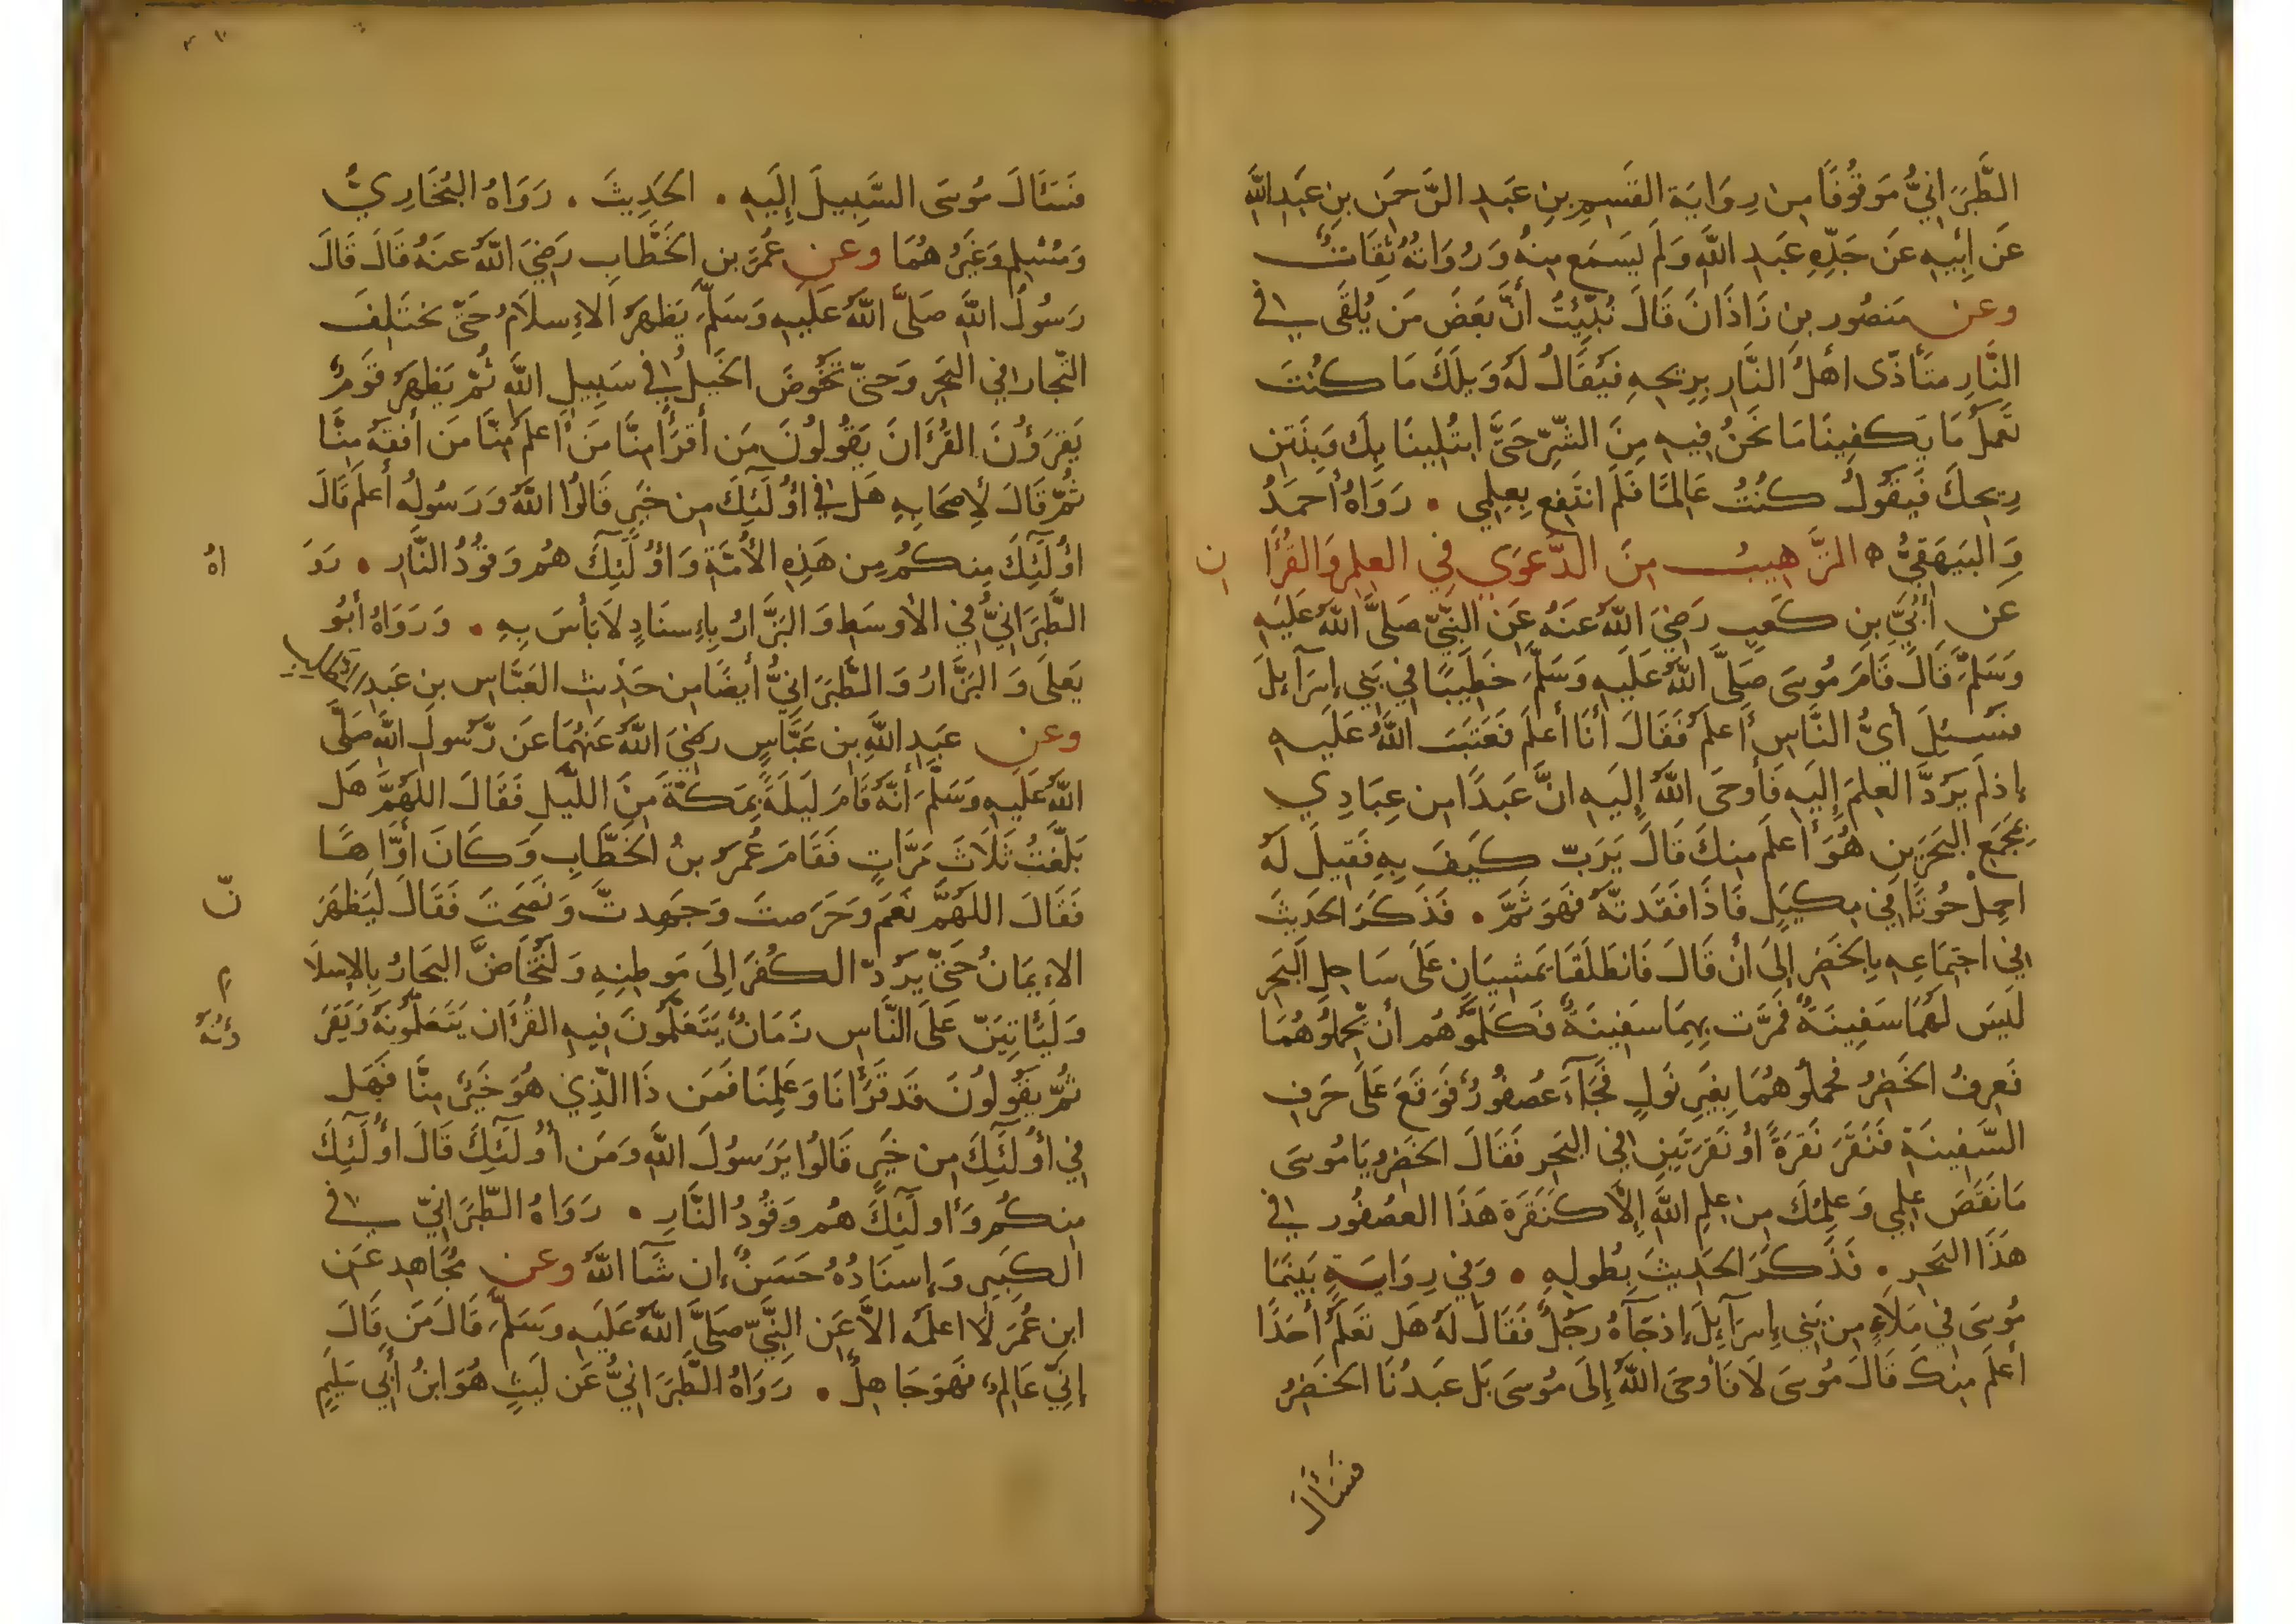 الطَّبَرَانِيُّ مَوقُوفًا مِن رِوَايَة القَسِمِ بنِ عَبدِ الرَّحمَن بنِ عَبدِ اللَّهِ
عَن أَبِيهِ عَن جَدِّهِ عَبدِ اللَّهِ وَلَم يَسمَع مِنهُ وَرُوَاتُهُ ثِقَاتٌ
وعن مَنصُورِ بنِ زَاذَانَ قَالَ نُبِّئتُ أَنَّ بَعضَ مَن يُلقَى فِي
النَّارِ مَتَأَذّى اهلُ النَّارِ بِرِيحِهِ فَيُقَالُ لَهُ وَيلَكَ مَا كُنتَ
تَعمَلُ مَا يَكفِينَا مَا نَحنُ فِيهِ مِنَ الشَّرِّ حَتَّى ابتُلِينَا بِكَ وَبِنَتِن
رِيحِكَ فَيَقُولُ كُنتُ عَالِمًا فَلَم انتَفِع بِعِلمِي . رَوَاهُ أحمَدُ
وَالبَيهَقِيُّ ه الترَّهِيبُ مِنَ الدَّعوَي فِي العِلمِ وَالقُرأَا ن
عَن أُبَيِّ بنِ كَعبٍ رَضِيَ اللَّهُ عَنهُ عَنِ النَّبِيِّ صَلَّى اللَّهُ عَلَيهِ
وَسَلَّمَ قَالَ قَامَ مُوسَى صَلَّى اللَّهُ عَلَيهِ وَسَلَّمَ خَطِيبًا فِي بَنِي إِسرَآءِيلَ
فَسُئِلَ أَيُّ النَّاسِ أَعلَمُ فَقَالَ أَنَا أَعلَمُ فَعَتَبَ اللَّهُ عَلَيهِ
إِذ لَم يَرُدَّ العِلمَ إِلَيهِ فَأَوحَى اللَّهُ إِلَيهِ انَّ عَبدًا مِن عِبَادِي
بِمَجمَعِ البَحرَينِ هُوَ أَعلَمُ مِنكَ قَالَ يَرَبِّ كَيفَ بِهِ فَقِيلَ لَهُ
احمِل حُوتًا فِي مِكيَلٍ فَاذَا فَقَدتَّهُ فَهوَ ثَمَّ . فَذَكَرَ الحَدِيثَ
فِي اجتِمَاعِهِ بِالخَضِرِ إِلَى أَن قَالَ فَانطَلَقَا يَمشِيَانِ عَلَى سَاحِلِ البَحرِ
لَيسَ لَهُمَا سَفِينَةٌ فَمَرَّت بِهِمَا سَفِينَةٌ فَكَلَّمُوهُم أَن يَّحمِلُوهُمَا
فَعَرِفُ الخَضِرُ فَحَمَلُوهُمَا بِغَيرِ نَولٍ فَجَآءَ عُصفُورٌ فَوَقَعَ عَلَى حَرفِ
السَّفِينَةِ فَنَقَرَ نَقرَةً أَو نَقرَتَينِ فِي البَحرِ فَقَالَ الخَضِرُ يَا مُوسَى
مَا نَقَصَ عِلمِي وَعِلمُكَ مِن عِلمِ اللَّهِ إِلاَّ كَنَقرَةِ هَذَا العُصفُورِ فِي
هَذَا البَحرِ . فَذَكَرَ الحَدِيثَ بِطُولِهِ . وَفِي رِوَايَةٍ بَينَمَا
مُوسَى فِي مَلَاءٍ مِن بَنِي إِسرَآءِيلَ إِذ جَآءَهُ رَجُلٌ فَقَالَ لَهُ هَل تَعلَمُ أَحَدًا
أَعلَمَ مِنكَ قَالَ مُوسَى لَا فَأَوحَى اللَّهُ إِلَى مُوسَى بَل عَبدُنَا الخَضِرُ
فَسَأَلَ
فَسَأَلَ مُوسَى السَّبِيلَ إِلَيهِ . الحَدِيثَ . رَوَاهُ البُخَارِيُّ
وَمُسلِم وَغَيرُهُمَا وعن عُمَرَ بنِ الخَطَّابِ رَضِيَ اللَّهُ عَنهُ قَالَ قَالَ
رَسُولُ اللَّهِ صَلَّى اللَّهُ عَلَيهِ وَسَلَّمَ يَظهَرُ الاِسلَامُ حَتَّى تختَلِفَ
التُّجارُ فِي البَحرِ وَحَتَّى تَخُوضَ الخَيلُ فِي سَبِيلِ اللَّهِ ثُمَّ يَظهَرُ قَومٌ
يَقرَؤُنَ القُرأَنَ يَقُولُونَ مَن أَقرَأُ مِنَّا مَن أَعلَمُ مِنَّا مَن أَفقَهُ مِنَّا
ثُمَّ قَالَ لِأَصحَابِهِ هَل فِي أُولَئِكَ مِن خَيرٍ قَالُوا اللَّهُ وَرَسُولُه أَعلَمُ قَالَ
اُولَئِكَ مِنكُم مِن هَذِهِ الأُمَّةِ وَأُولَئِكَ هُم وَقُودُ النَّارِ . رَوَ اهُ
الطَّبَرَانِيُّ فِي الأَوسَطِ وَالبَزَّارُ بِإِسنَادٍ لَا بَأسَ بِهِ . وَرَوَاهُ أَبُو
يَعلَى وَالبَزَّارُ وَالطَّبَرَانِيُّ أَيضًا مِن حَدِيثِ العَبَّاسِ بنِ عَبدِ المطلب
وعن عَبدِ اللَّهِ بنِ عَبَّاسٍ رَضِيَ اللَّهُ عَنهُمَا عَن رَّسُولِ اللَّهِ صَلَّى
اللَّهُ عَلَيهِ وَسَلَّمَ أَنَّهُ قَامَ لَيلَةً بِمَكَّةَ مِنَ اللَّيلِ فَقَالَ اللَّهُمَّ هَل
بَلَّغتُ ثَلَاثَ مَرَّاتٍ فَقَامَ عُمَرُ بنُ الخَطَّابِ وَكَانَ أَوَّاهًا
فَقَالَ اللَّهُمَّ نَعَم وَحَرَصتَ وَجَهِدتَّ وَنَصَحتَ فَقَالَ لَيَظهَرَ نّ
الاءِيمَانُ حَتَّى يَرُدّ الكُفرَ اِلَى مَوطِنِهِ وَلَتُخَاضَنَّ البِحَارُ بِالاِسلَا مِ
وَلَيَأتِيَنّ عَلَى النَّاسِ زَمَانٌ يَتَعَلَّمُونَ فِيهِ القُرأَنَ يَتَعَلَّمُونَهُ وَيَقرَ ؤُنَهُ
ثُمَّ يَقُولُونَ قَد قَرَأنَا وَعَلِمنَا فَمَن ذَا الَّذِي هُوَ خَيرٌ مِنَّا فَهَل
فِي أُولَئِكَ مِن خَيرٍ قَالُوا يَرَسُولَ اللَّهِ وَمَن أُولَئِكَ قَالَ أُولَئِكَ
مِنكُم وَأُولَئِكَ هُم وَقُودُ النَّارِ . رَوَاهُ الطَّبَرَانِيّ فِي
الكَبِيرِ وَإِسنَادُهُ حَسَنٌ إِن شَآ اللَّهُ وعن مُجَاهِدٍ عَن
ابنِ عُمَرَ لَا اعلَمُه الاَّ عَنِ النَّبِيِّ صَلَّى اللَّهُ عَلَيهِ وَسَلَّمَ قَالَ مَن قَالَ
إِنِّي عَالِمٌ فَهوَ جَاهِلٌ . رَوَاهُ الطَّبَرَانِيُّ عَن لَيثٍ هُوَ ابنُ أَبِي سَلِيمٍ